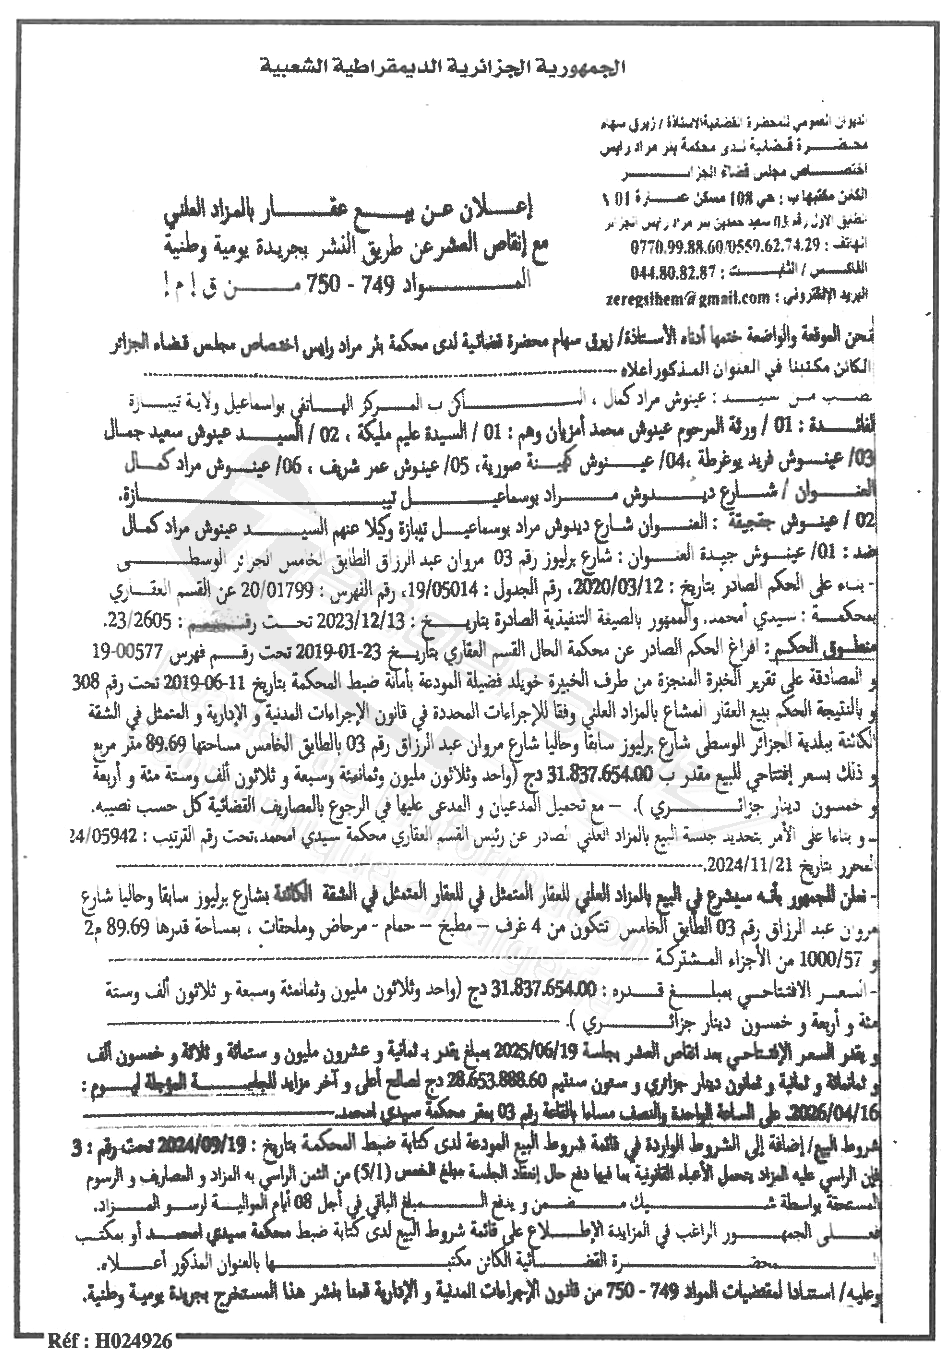 الجمهورية الجزائرية الديمقراطية الشعبية
الديوان العمومي للمحضرة القضائية الاستاذة / زيرق سهام
محضرة قضائية لدى محكمة بئر مراد رايس
اختصاص مجلس قضاء الجزائر
الكائن مكتبها ب : حي 108 مسكن عمارة 01
الطابق الاول رقم 03 سعيد حمدين بئر مراد رايس الجزائر
الهاتف : 0770.99.88.60/0559.62.74.29
الفاكس / الثابت : 044.80.82.87
البريد الإلكتروني : zeregsihem@gmail.com
إعلان عن بيع عقار بالمزاد العلني
مع إنقاص العشر عن طريق النشر بجريدة يومية وطنية
المواد 749 - 750 من ق إ م إ
نحن الموقعة والواضعة ختمها أدناه الأستاذة/ زيرق سهام محضرة قضائية لدى محكمة بئر مراد رايس اختصاص مجلس قضاء الجزائر
الكائن مكتبنا في العنوان المذكور أعلاه
بطلب من سيد : عينوش مراد كمال ، الساكن ب المركز الهاتفي بواسماعيل ولاية تيبازة
لفائدة : 01 / ورثة المرحوم عينوش محمد أمزيان وهم : 01 / السيدة عليم مليكة ، 02 / السيد عينوش سعيد جمال
03/ عينوش فريد يوغرطة ،04/ عينوش كهينة صورية، 05/ عينوش عمر شريف ، 06/ عينوش مراد كمال
العنوان / شارع ديدوش مراد بوسماعيل تيبازة.
02 / عينوش جقجيقة : العنوان شارع ديدوش مراد بوسماعيل تيبازة وكيلا عنهم السيد عينوش مراد كمال
ضد : 01/ عينوش جيدة العنوان : شارع برليوز رقم 03 مروان عبد الرزاق الطابق الخامس الجزائر الوسطى
- بناء على الحكم الصادر بتاريخ : 2020/03/12، رقم الجدول : 19/05014، رقم الفهرس : 20/01799 عن القسم العقاري
بمحكمة : سيدي أمحمد، والممهور بالصيغة التنفيذية الصادرة بتاريخ : 2023/12/13 تحت رقم : 23/2605.
منطوق الحكم : افراغ الحكم الصادر عن محكمة الحال القسم العقاري بتاريخ 23-01-2019 تحت رقم فهرس 00577-19
و المصادقة على تقرير الخبرة المنجزة من طرف الخبيرة خويلد فضيلة المودعة بأمانة ضبط المحكمة بتاريخ 11-06-2019 تحت رقم 308
و بالنتيجة الحكم ببيع العقار المشاع بالمزاد العلني وفقا للإجراءات المحددة في قانون الإجراءات المدنية و الإدارية و المتمثل في الشقة
الكائنة ببلدية الجزائر الوسطى شارع برليوز سابقا وحاليا شارع مروان عبد الرزاق رقم 03 بالطابق الخامس مساحتها 89.69 متر مربع
و ذلك بسعر إفتتاحي للبيع مقدر ب 31.837.654.00 دج (واحد وثلاثون مليون وثمانمئة وسبعة و ثلاثون ألف وستة مئة و أربعة
و خمسون دينار جزائري ). – مع تحميل المدعيان و المدعى عليها في الرجوع بالمصاريف القضائية كل حسب نصيبه.
- و بناءا على الأمر بتحديد جلسة البيع بالمزاد العلني الصادر عن رئيس القسم العقاري محكمة سيدي امحمد،تحت رقم الترتيب : 24/05942
المحرر بتاريخ 2024/11/21.
- نعلن للجمهور بأنه سيشرع في البيع بالمزاد العلني للعقار المتمثل في للعقار المتمثل في الشقة الكائنة بشارع برليوز سابقا وحاليا شارع
مروان عبد الرزاق رقم 03 الطابق الخامس تتكون من 4 غرف – مطبخ – حمام - مرحاض وملحقات ، بمساحة قدرها 89.69 م2
و 1000/57 من الأجزاء المشتركة
- السعر الافتتاحي بمبلغ قدره : 31.837.654.00 دج (واحد وثلاثون مليون وثمانمئة وسبعة و ثلاثون ألف وستة
مئة و أربعة و خمسون دينار جزائري ).
و يقدر السعر الإفتتاحي بعد انقاص العشر بجلسة 2025/06/19 بمبلغ يقدر بـ ثمانية و عشرون مليون و ستمائة و ثلاثة و خمسون ألف
و ثمانمائة و ثمانية و ثمانون دينار جزائري و ستون سنتيم 28.653.888.60 دج لصالح أعلى و آخر مزايد للجلسة المؤجلة ليوم :
2026/04/16. على الساعة الواحدة والنصف مساءا بالقاعة رقم 03 بمقر محكمة سيدي امحمد.
شروط البيع/ إضافة إلى الشروط الواردة في قائمة شروط البيع المودعة لدى كتابة ضبط المحكمة بتاريخ : 2024/09/19 تحت رقم : 3
فإن الراسي عليه المزاد يتحمل الأعباء القانونية بما فيها دفع حال إنعقاد الجلسة مبلغ الخمس (5/1) من الثمن الراسي به المزاد و المصاريف و الرسوم
المستحقة بواسطة شيك مضمن و يدفع المبلغ الباقي في أجل 08 أيام الموالية لرسو المزاد.
فعلى الجمهور الراغب في المزايدة الإطلاع على قائمة شروط البيع لدى كتابة ضبط محكمة سيدي امحمد أو بمكتب
المحضرة القضائية الكائن مكتبها بالعنوان المذكور أعلاه.
وعليه/ إستنادا لمقتضيات المواد 749 - 750 من قانون الإجراءات المدنية و الإدارية قمنا بنشر هذا المستخرج بجريدة يومية وطنية.
Réf : H024926